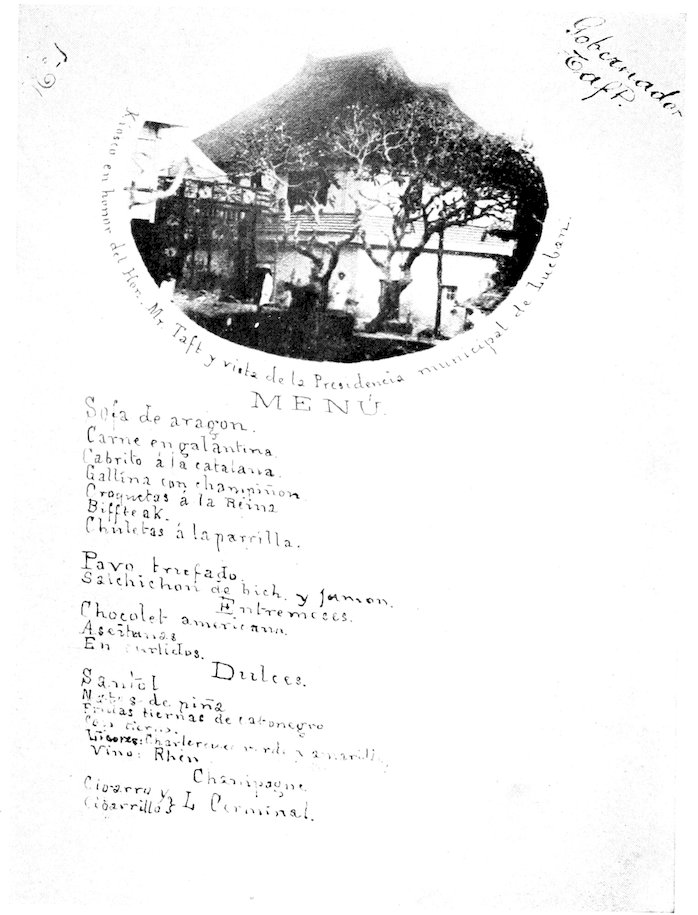 Gobernador
Taft.
Kiosco en honor del Hon. Mr. Taft y vista de la Presidencia municipal de Lucban.
MENÚ.
Sofa de aragon.
Carne en galantina.
Cabrito á la catalana.
Gallina con champiñon.
Croquetas á la Reina
Biffteak.
Chuletas á la parrilla.
Pavo trufado.
Salchichon de hich. y jamon.
Entremeses.
Chocolet americano.
Aseitunas
En curtidos.
Dulces.
Santol
de piña
tiernas de cabonegro
Licores: verde y amarillo,
Vino: Rhin
Champagne
Cigarro y
Cigarrillos